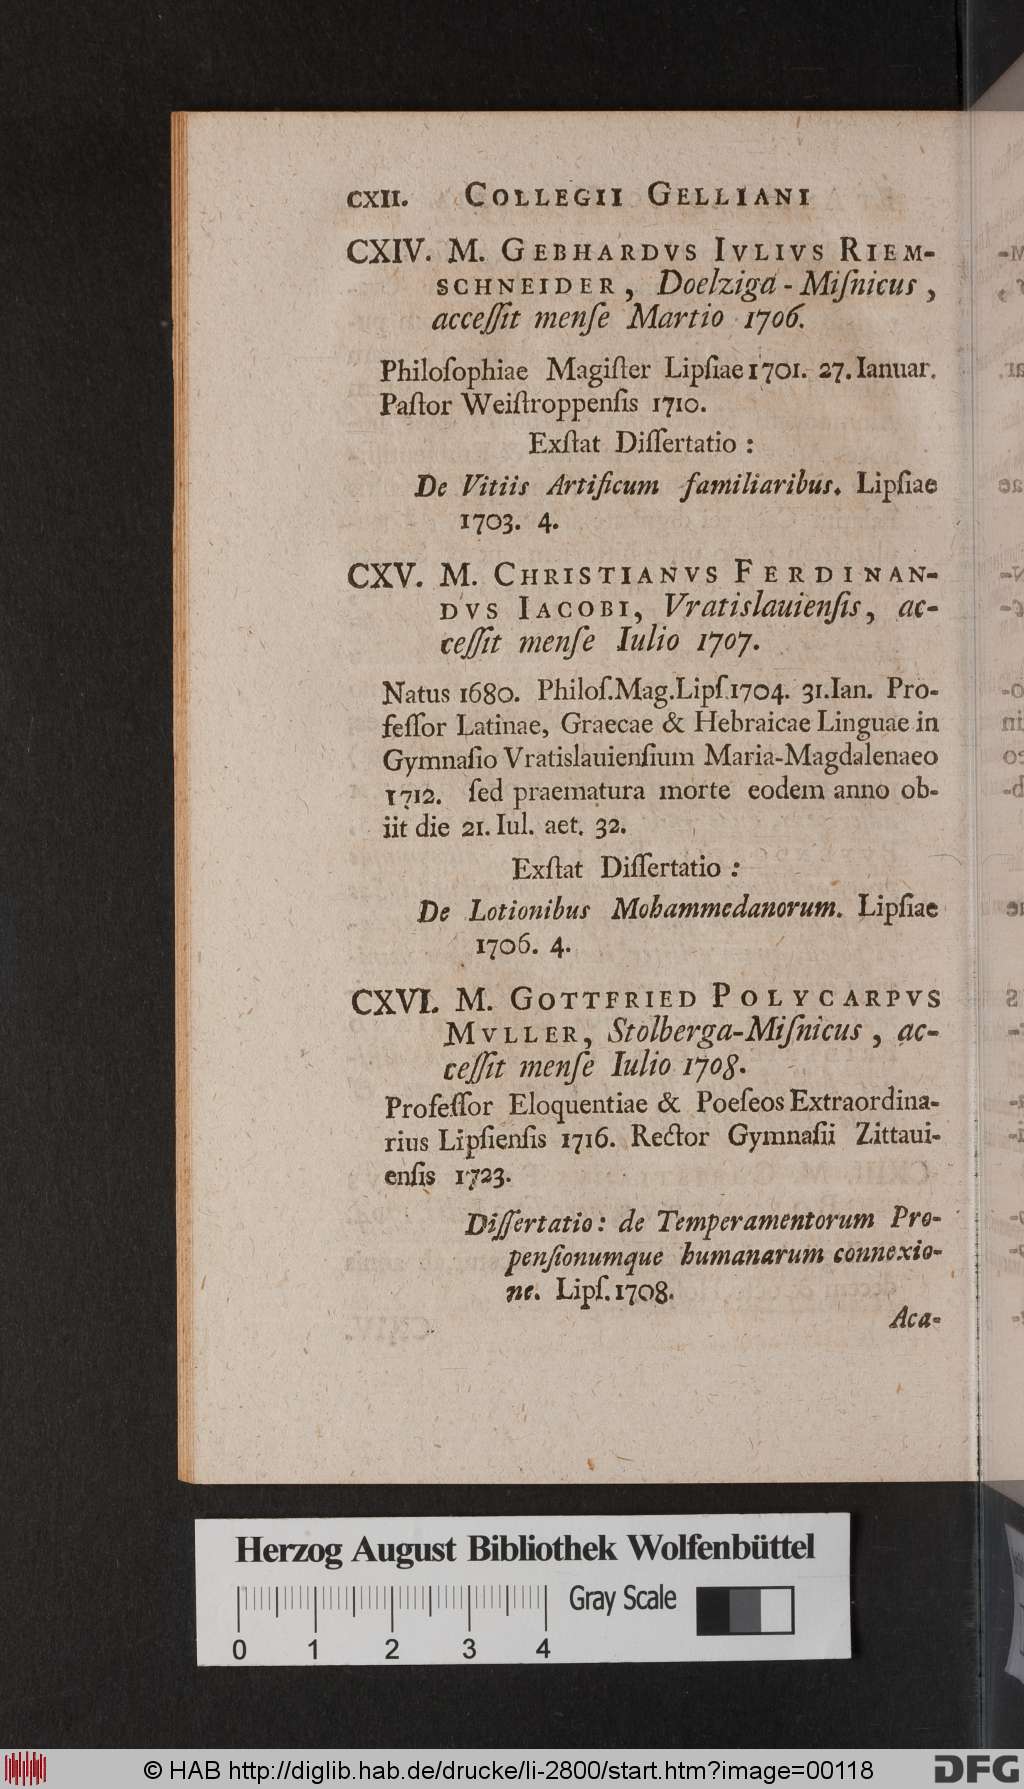 CXII. COLLEGII GELLIANI
CXIV. M. GEBHARDVS IVLIVS RIEM-
SCHNEIDER, Doelziga-Miſnicus,
acceſſit menſe Martio 1706.
Philoſophiae Magiſter Lipſiae 1701. 27. Ianuar.
Paſtor Weiſtroppenſis 1710.
Exſtat Diſſertatio:
De Vitiis Artificum familiaribus. Lipſiae
1703. 4.
CXV. M. CHRISTIANVS FERDINAN-
DVS IACOBI, Vratislauienſis, ac-
ceſſit menſe Iulio 1707.
Natus 1680. Philoſ. Mag. Lipſ. 1704. 31. Ian. Pro-
feſſor Latinae, Graecae & Hebraicae Linguae in
Gymnaſio Vratislauienſium Maria-Magdalenaeo
1712. ſed praematura morte eodem anno ob-
iit die 21. Iul. aet. 32.
Exſtat Diſſertatio:
De Lotionibus Mohammedanorum. Lipſiae
1706. 4.
CXVI. M. GOTTFRIED POLYCARPVS
MVLLER, Stolberga-Miſnicus, ac-
ceſſit menſe Iulio 1708.
Profeſſor Eloquentiae & Poeſeos Extraordina-
rius Lipſienſis 1716. Rector Gymnaſii Zittaui-
enſis 1723.
Diſſertatio: de Temperamentorum Pro-
penſionumque humanarum connexio-
ne. Lipſ. 1708.
Aca-
Herzog August Bibliothek Wolfenbüttel
Gray Scale
0 1 2 3 4
© HAB http://diglib.hab.de/drucke/li-2800/start.htm?image=00118
DFG